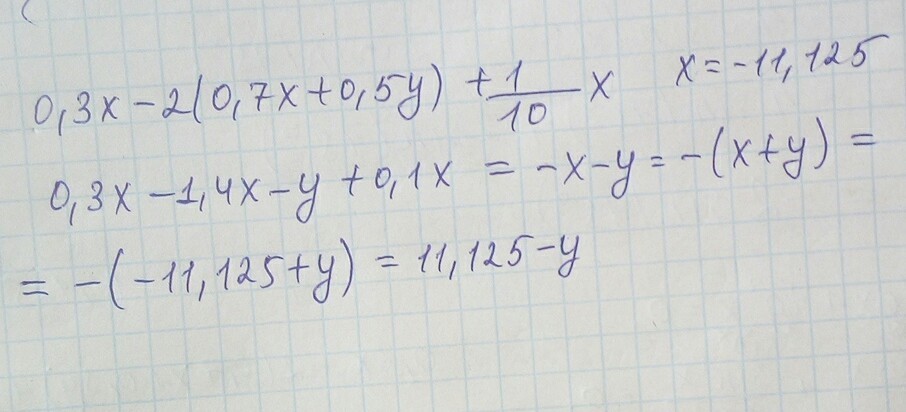 0,3x − 2(0,7x + 0,5y) + 1/10 x    x = −11,125
0,3x − 1,4x − y + 0,1x = −x − y = −(x + y) =
= −(−11,125 + y) = 11,125 − y